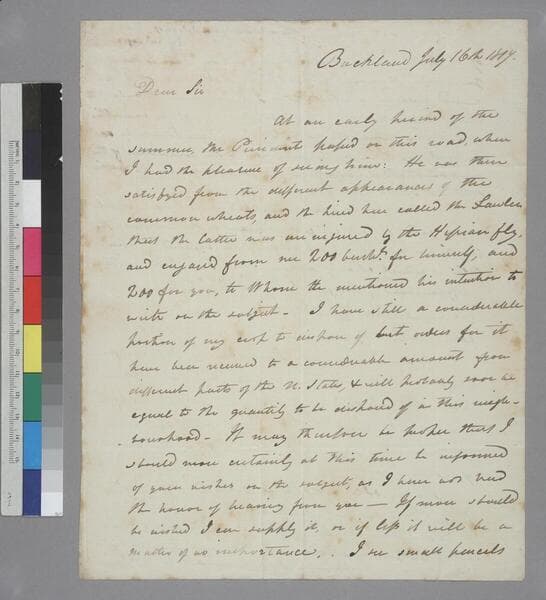 Buckland July 16th 1817.
Dear Sir
At an early period of the
summer, the President passed on this road, when
I had the pleasure of seeing him: He was then
satisfyed from the different appearances of the
common wheats, and the kind here called the Lawler
that the latter was uninjured by the Hessian fly,
and engaged from me 200 bushls. for himself, and
200 for you, to whom he mentioned his intention to
write on the subject - I have still a considerable
portion of my crop to dispose of but orders for it
have been received to a considerable amount from
different parts of the U. States, & will probably soon be
equal to the quantity to be disposed of in this neigh-
-bourhood - It may therefore be proper that I
should more certainly at this time be informed
of your wishes on the subject, as I have not had
the honor of hearing from you — If more should
be wished I can supply it, or if less it will be a
matter of no importance. . I see small parcels